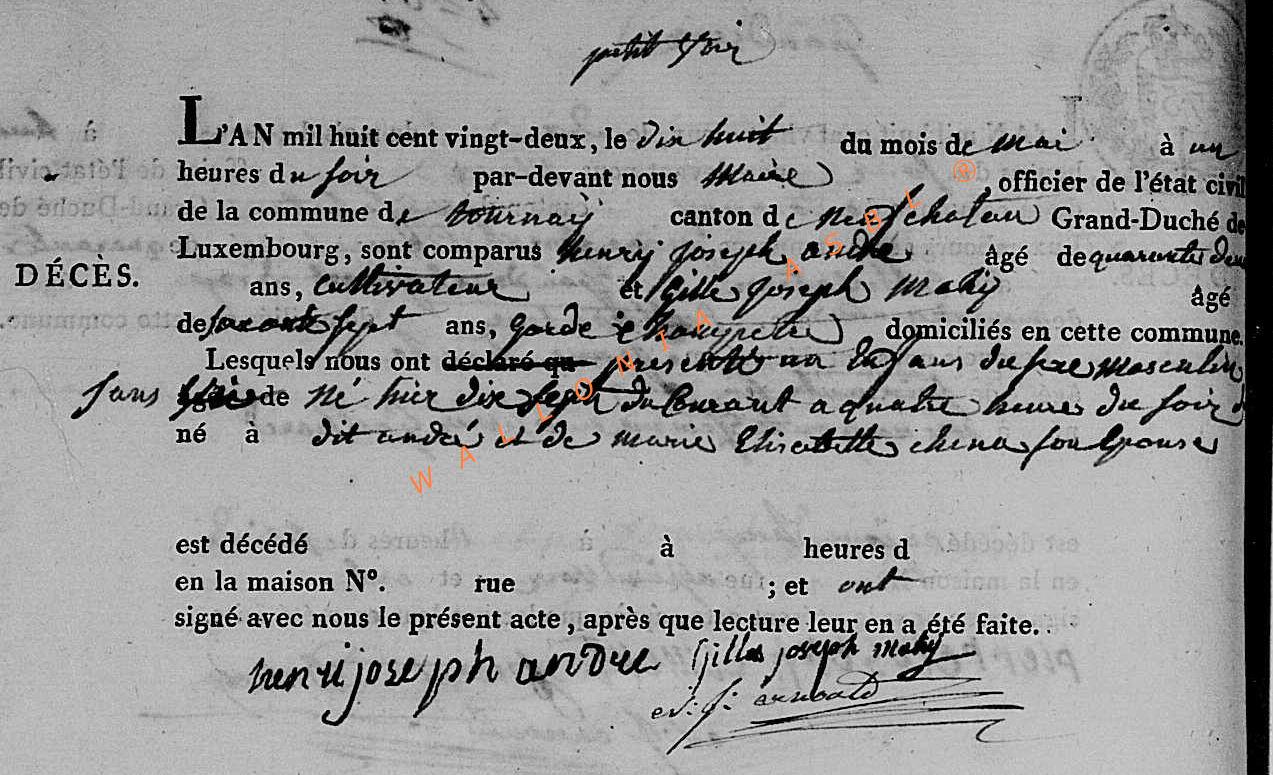 petit voir
L'AN mil huit cent vingt-deux, le dix huit du mois de mai à un
heures du soir par-devant nous Maire, officier de l'état civil
de la commune de tournay canton de neufchateau Grand-Duché de
Luxembourg, sont comparus henry joseph andre âgé de quarante deux
DÉCÈS.
ans, cultivateur et Gille joseph Mahy âgé
de soixante sept ans, Garde champetre domiciliés en cette commune.
Lesquels nous ont déclaré qu presenté un Enfans du sexe masculin
sans vie de Né hier dix sept du Courant a quatre heures du soir d
né à dit andré et de marie Elisabette chena son Epouse
est décédé à heures d
en la maison N°. rue ; et ont
signé avec nous le présent acte, après que lecture leur en a été faite.
henri joseph andre Gilles joseph Mahy
arnould
WALLONIA ASBL ®